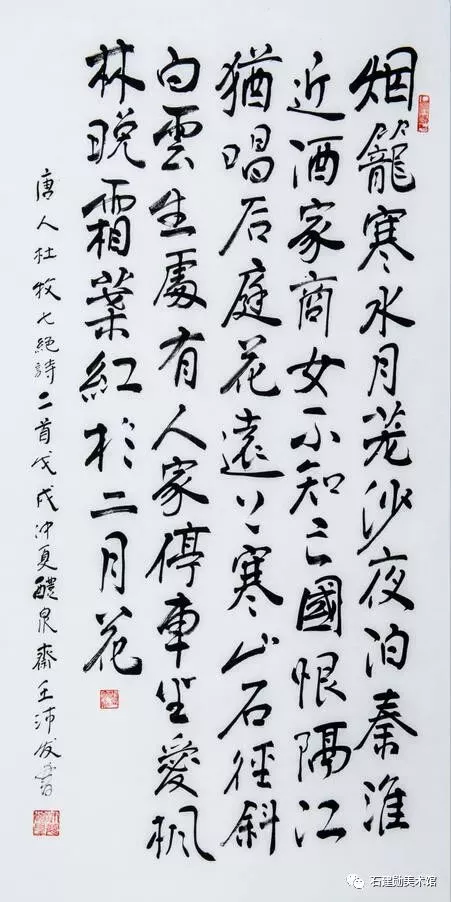 烟籠寒水月笼沙夜泊秦淮
近酒家商女不知亡國恨隔江
猶唱后庭花遠上寒山石徑斜
白雲生處有人家停車坐愛枫
林晚霜葉紅於二月花
唐人杜牧七絕詩二首戊戌仲夏醴泉齋王沛发書
石建勋美术馆